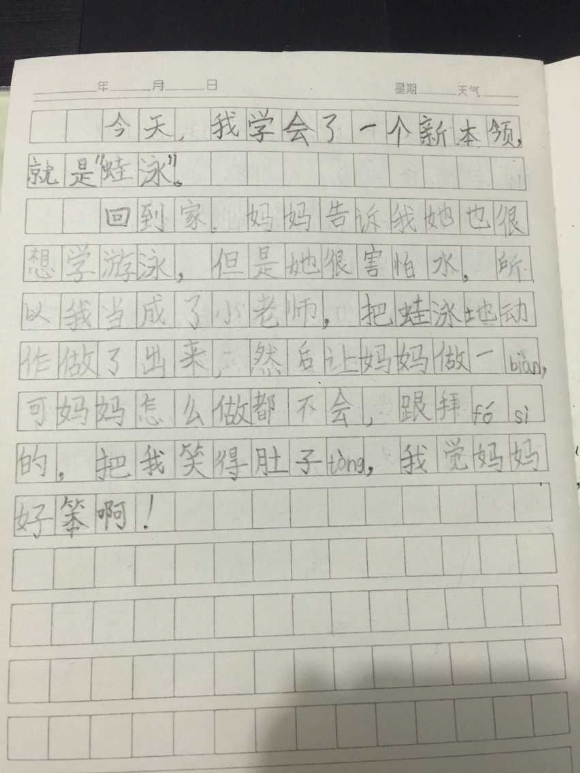 年 月 日 星期 天气
今天，我学会了一个新本领，
就是“蛙泳”。
回到家，妈妈告诉我她也很
想学游泳，但是她很害怕水，所
以我当成了小老师，把蛙泳地动
作做了出来，然后让妈妈做一biàn，
可妈妈怎么做都不会，跟拜fó sì
的，把我笑得肚子tòng，我觉妈妈
好笨啊！